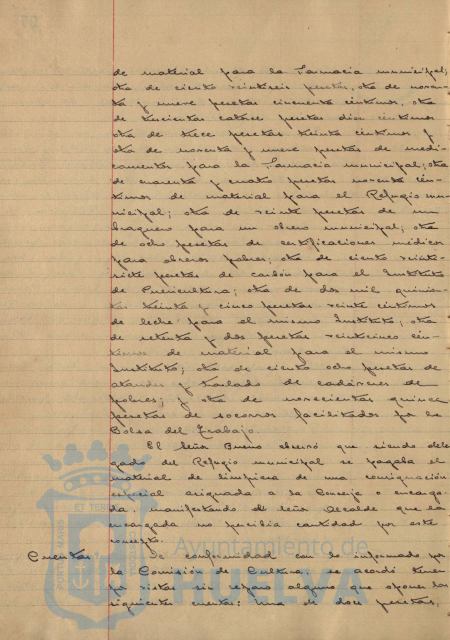 de material para la Farmacia municipal;
otra de ciento veintiseis pesetas, otra de noven-
ta y nueve pesetas cincuenta céntimos, otra
de trescientas catorce pesetas diez céntimos
otra de trece pesetas treinta céntimos y
otra de noventa y nueve pesetas de medi-
camentos para la Farmacia municipal; otra
de cuarenta y cuatro pesetas noventa cén-
timos de material para el Refugio mu-
nicipal; otra de veinte pesetas de un
braguero para un obrero municipal; otra
de ocho pesetas de certificaciones médicas
para obreros pobres; otra de ciento veinti-
siete pesetas de carbón para el Instituto
de Puericultura; otra de dos mil quinien-
tas treinta y cinco pesetas veinte céntimos
de leche para el mismo Instituto; otra
de setenta y dos pesetas veinticinco cén-
timos de material para el mismo
Instituto; otra de ciento ocho pesetas de
ataudes y traslado de cadáveres de
pobres; y otra de novecientas quince
pesetas de socorros facilitados por la
Bolsa del Trabajo.
El Señor Bueno observó que siendo dele-
gado del Refugio municipal se pagaba el
material de limpieza de una consignación
especial asignada a la Conserje o encarga-
da, manifestando el señor Alcalde que la
encargada no percibia cantidad por este
concepto.
Cuentas De conformidad con lo informado por
la Comisión de Cultura, se acordó tener
por vistas sin reparo alguno que oponer las
siguientes cuentas: Una de doce pesetas,
Ayuntamiento de
HUELVA